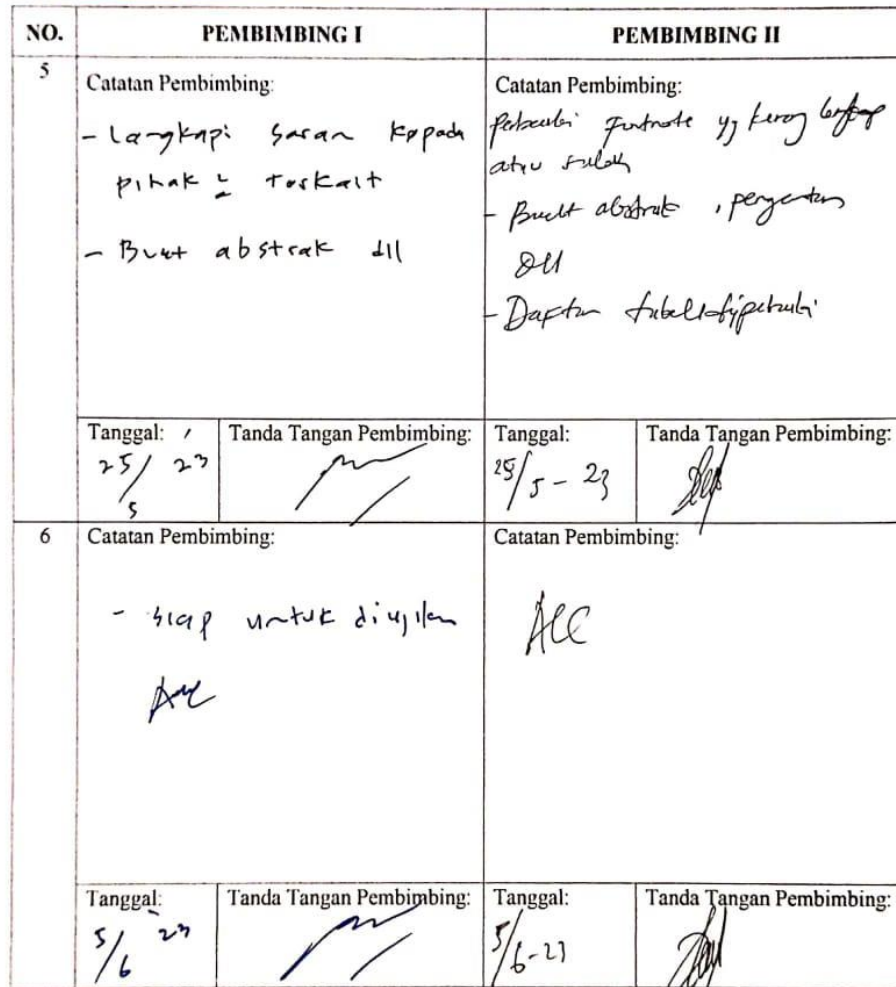 NO. PEMBIMBING I PEMBIMBING II
5
Catatan Pembimbing:
- Langkapi saran kepada
pihak 2 terkait
- Buat abstrak dll
Catatan Pembimbing:
Perbaiki footnote yg kurang lengkap
atau salah
- Buat abstrak, pengantar
dll
- Daftar tabel diperbaiki
Tanggal:
25/5 23
Tanda Tangan Pembimbing:
Tanggal:
25/5 - 23
Tanda Tangan Pembimbing:
6
Catatan Pembimbing:
- Siap untuk diujikan
Acc
Catatan Pembimbing:
ACC
Tanggal:
5/6 23
Tanda Tangan Pembimbing:
Tanggal:
5/6-23
Tanda Tangan Pembimbing: